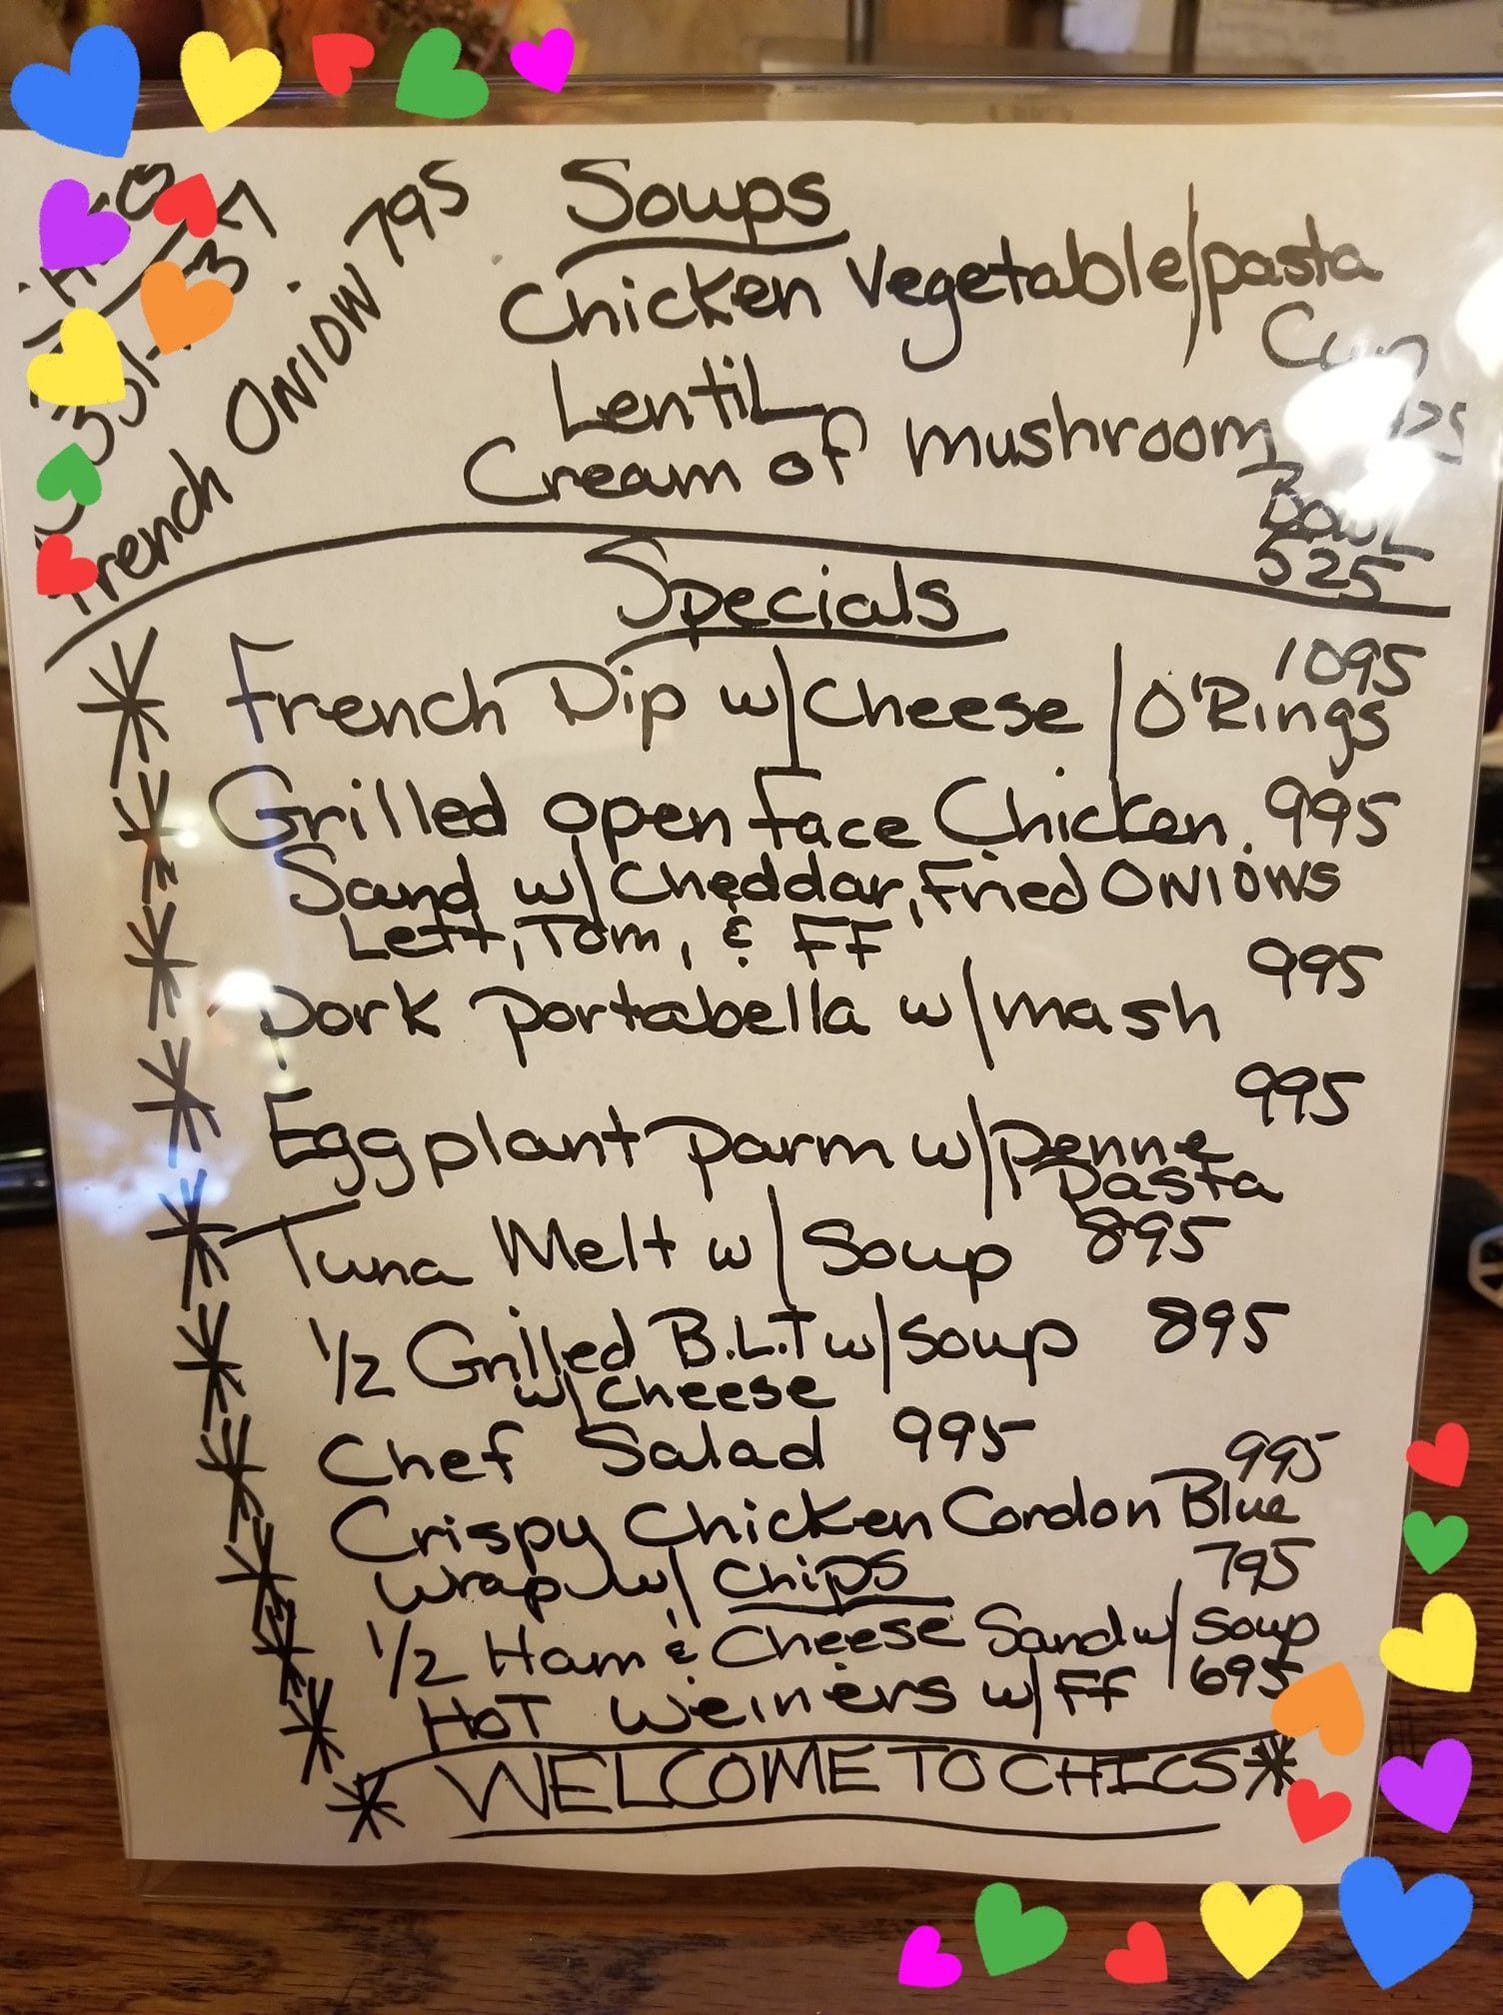 French ONION 795
Soups
Chicken Vegetable/pasta
Cup
Lentil
Cream of mushroom
Bowl
525
Specials
1095
French Dip w/Cheese/O'Rings
Grilled open face Chicken 995
Sand w/Cheddar, Fried ONIONS
Lett, Tom, & FF
995
Pork Portabella w/mash
995
Eggplant Parm w/Penne
Pasta
Tuna Melt w/Soup 895
1/2 Grilled B.L.T w/Soup 895
w/Cheese
Chef Salad 995
995
Crispy Chicken Cordon Blue
Wrap w/ Chips
795
1/2 Ham & Cheese Sand w/Soup
HOT Weiners w/FF 695
WELCOME TO CHICS